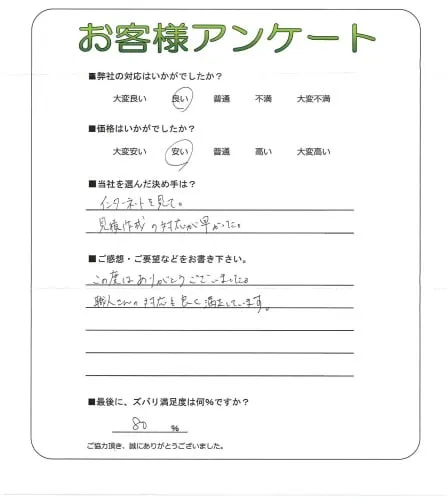 お客様アンケート
■弊社の対応はいかがでしたか？
大変良い 良い 普通 不満 大変不満
■価格はいかがでしたか？
大変安い 安い 普通 高い 大変高い
■当社を選んだ決め手は？
インターネットを見て。
見積作成の対応が早かった。
■ご感想・ご要望などをお書き下さい。
この度はありがとうございました。
職人さんの対応も良く満足しています。
■最後に、ズバリ満足度は何％ですか？
80 ％
ご協力頂き、誠にありがとうございました。